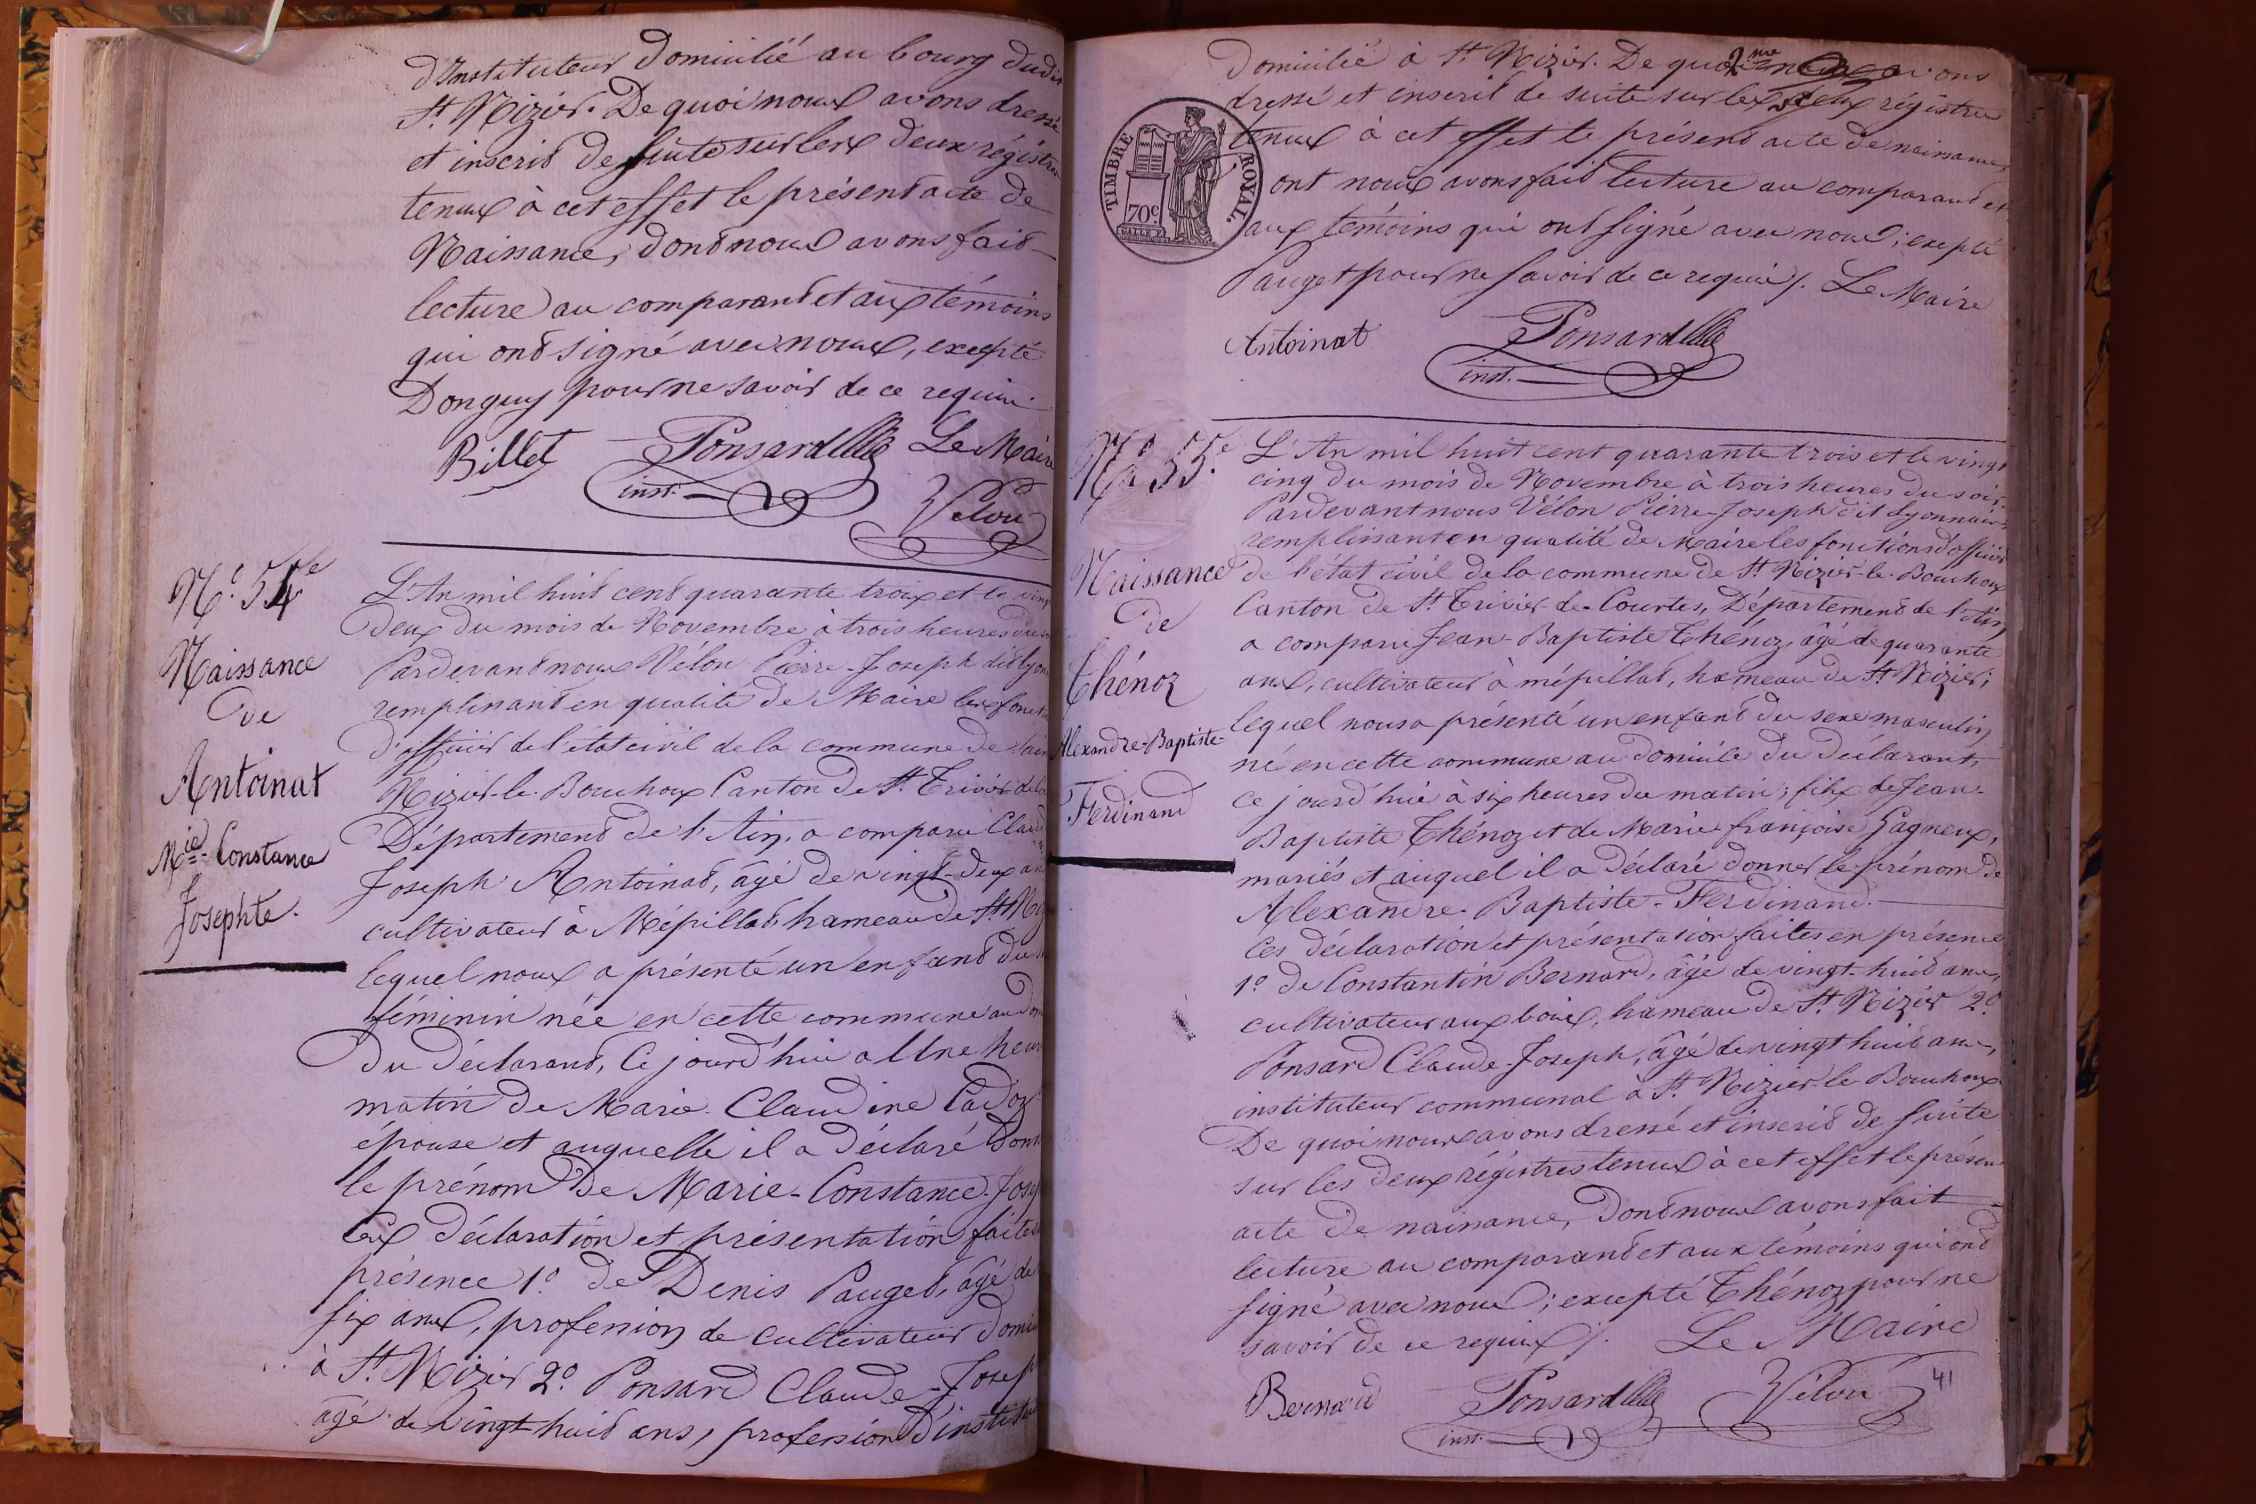 d'Instituteur domicilié au bourg dudit
St. Nizier. De quoi nous avons dressé
et inscrit de suite sur les deux régistres
tenus à cet effet le présent acte de
Naissance, dont nous avons fait
lecture au comparant et aux témoins
qui ont signé avec nous, excepté
Donguy pour ne savoir de ce requis.
Billet Ponsard Le Maire
inst. Vélon
No. 54e
Naissance
de
Antoinat
Mie-Constance
Josephte.
L'An mil huit cent quarante trois et le vingt
deux du mois de Novembre à trois heures du
Pardevant nous Vélon Pierre-Joseph dit Lyon
remplissant en qualité de Maire les fonct
d'officier de l'état civil de la commune de Saint
Nizier-le-Bouchoux Canton de St. Trivier de
Département de l'Ain, a comparu Claude
Joseph Antoinat, âgé de vingt-deux ans
cultivateur à Mépillat hameau de St. Niz
lequel nous a présenté un enfant du
féminin née en cette commune au dom
du déclarant, Ce jourd'hui à Une heure
matin de Marie-Claudine Cadoz
épouse et auquelle il a déclaré donn
le prénom de Marie-Constance-Josep
Ces déclaration et présentation faites
présence 1o. de Denis Pauget, âgé de
six ans, profession de cultivateur domi
à St. Nizier 2o. Ponsard Claude-Joseph
âgé de vingt-huit ans, profession d'institut
domicilié à St. Nizier. De quoi nous avons
2me
dressé et inscrit de suite sur les deux régistres
tenus à cet effet le présent acte de naissance,
dont nous avons fait lecture au comparant et
aux témoins qui ont signé avec nous; excepté
Pauget pour ne savoir de ce requis/. Le Maire
TIMBRE ROYAL.
70c.
Antoinat Ponsard
inst.
No. 55e.
Naissance
de
Thénoz
Alexandre-Baptiste-
Ferdinand
L'An mil huit cent quarante trois et le vingt
cinq du mois de Novembre à trois heures du soir
Pardevant nous Vélon Pierre-Joseph dit Lyonnais
remplissant en qualité de Maire les fonctions d'officier
de l'état civil de la commune de St. Nizier-le-Bouchoux
Canton de St. Trivier-de-Courtes, Département de l'Ain
a comparu Jean-Baptiste Thénoz, âgé de quarante
ans, cultivateur à mépillat, hameau de St. Nizier;
lequel nous a présenté un enfant du sexe masculin,
né en cette commune au domicile du déclarant,
ce jourd'hui à six heures du matin; fils de Jean-
Baptiste Thénoz et de Marie-françoise Gagneux,
mariés et auquel il a déclaré donner le prénom de
Alexandre-Baptiste-Ferdinand.
Ces déclaration et présentation faites en présence
1o. de Constantin Bernard, âgé de vingt-huit ans,
cultivateur aux bois, hameau de St. Nizier 2o.
Ponsard Claude-Joseph, âgé de vingt huit ans,
instituteur communal à St. Nizier-le-Bouchoux
De quoi nous avons dressé et inscrit de suite
sur les deux régistres tenus à cet effet le présent
acte de naissance, dont nous avons fait
lecture au comparant et aux témoins qui ont
signé avec nous; excepté Thénoz pour ne
savoir de ce requis/. Le Maire
Bernard Ponsard Vélon
inst.
41